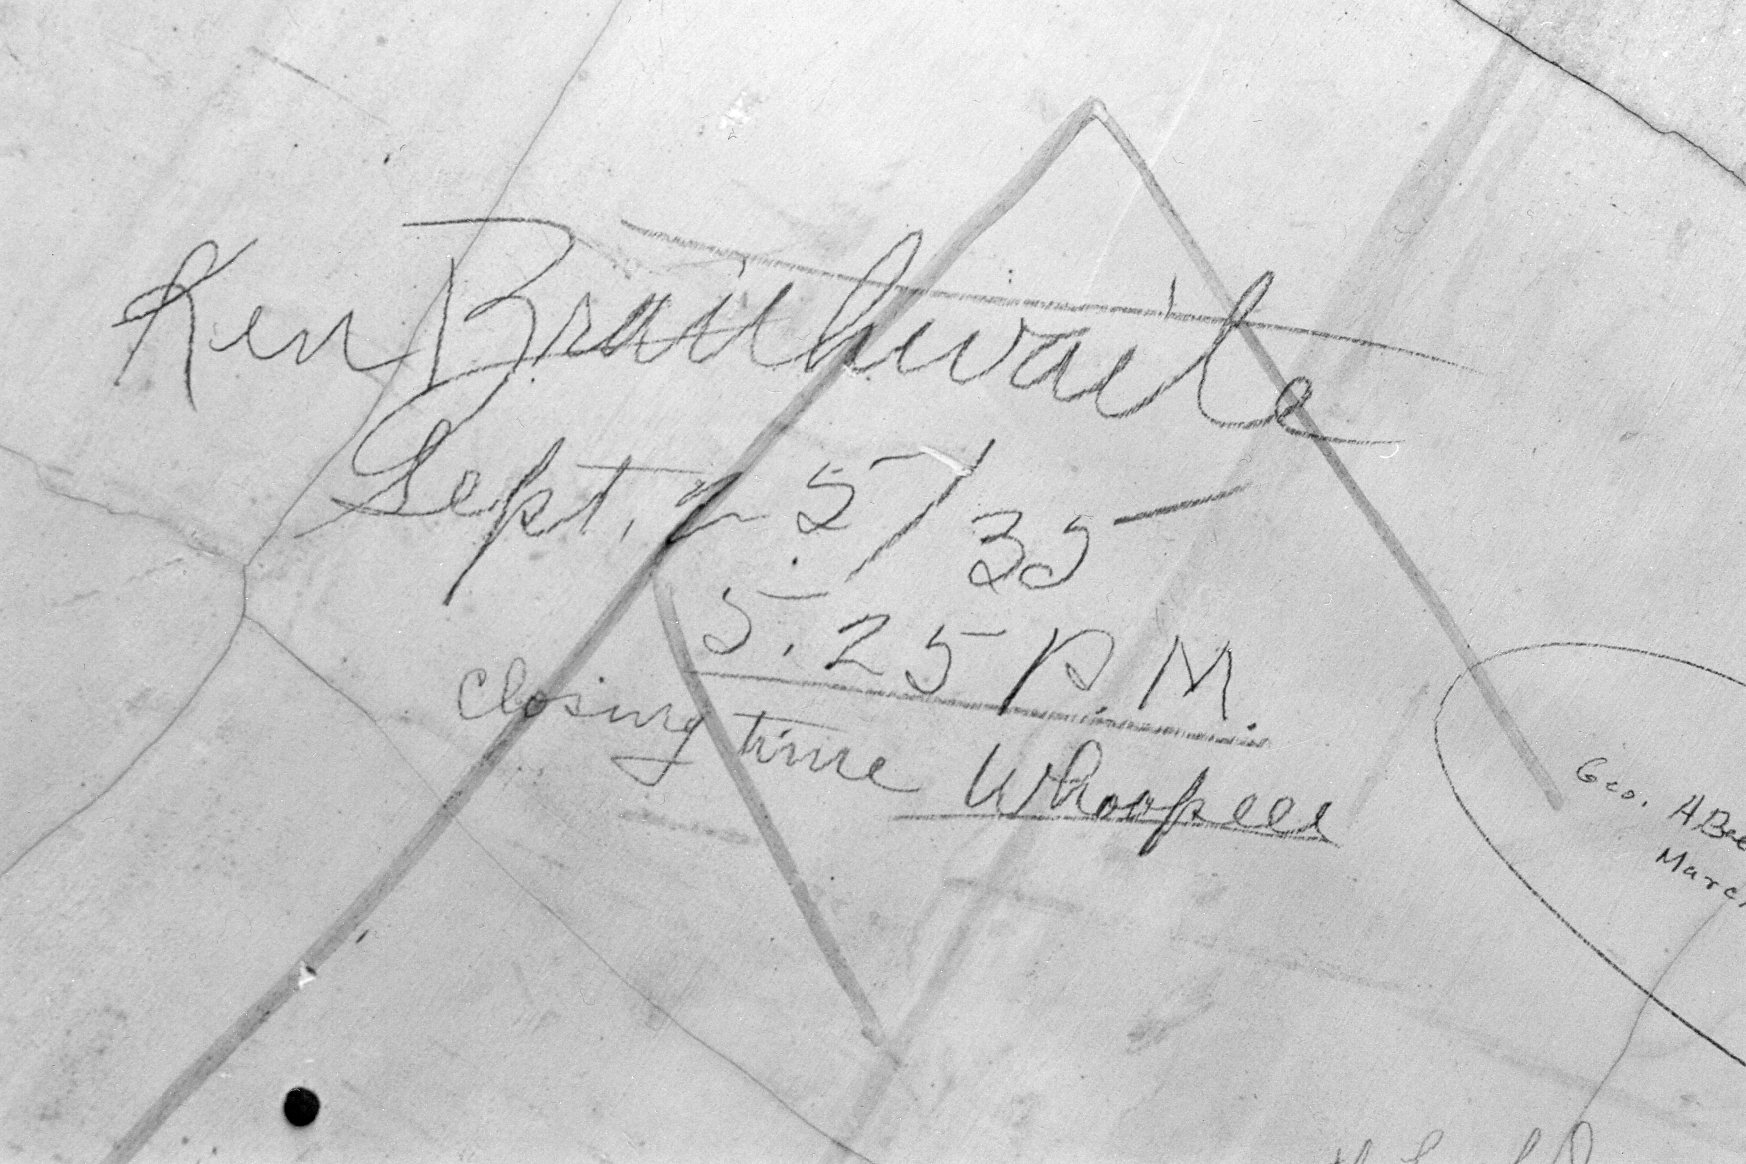 Ken Braithwaite
Sept. 25/35
5.25 P.M.
Closing time Whoopeee
Geo. A Bee
March